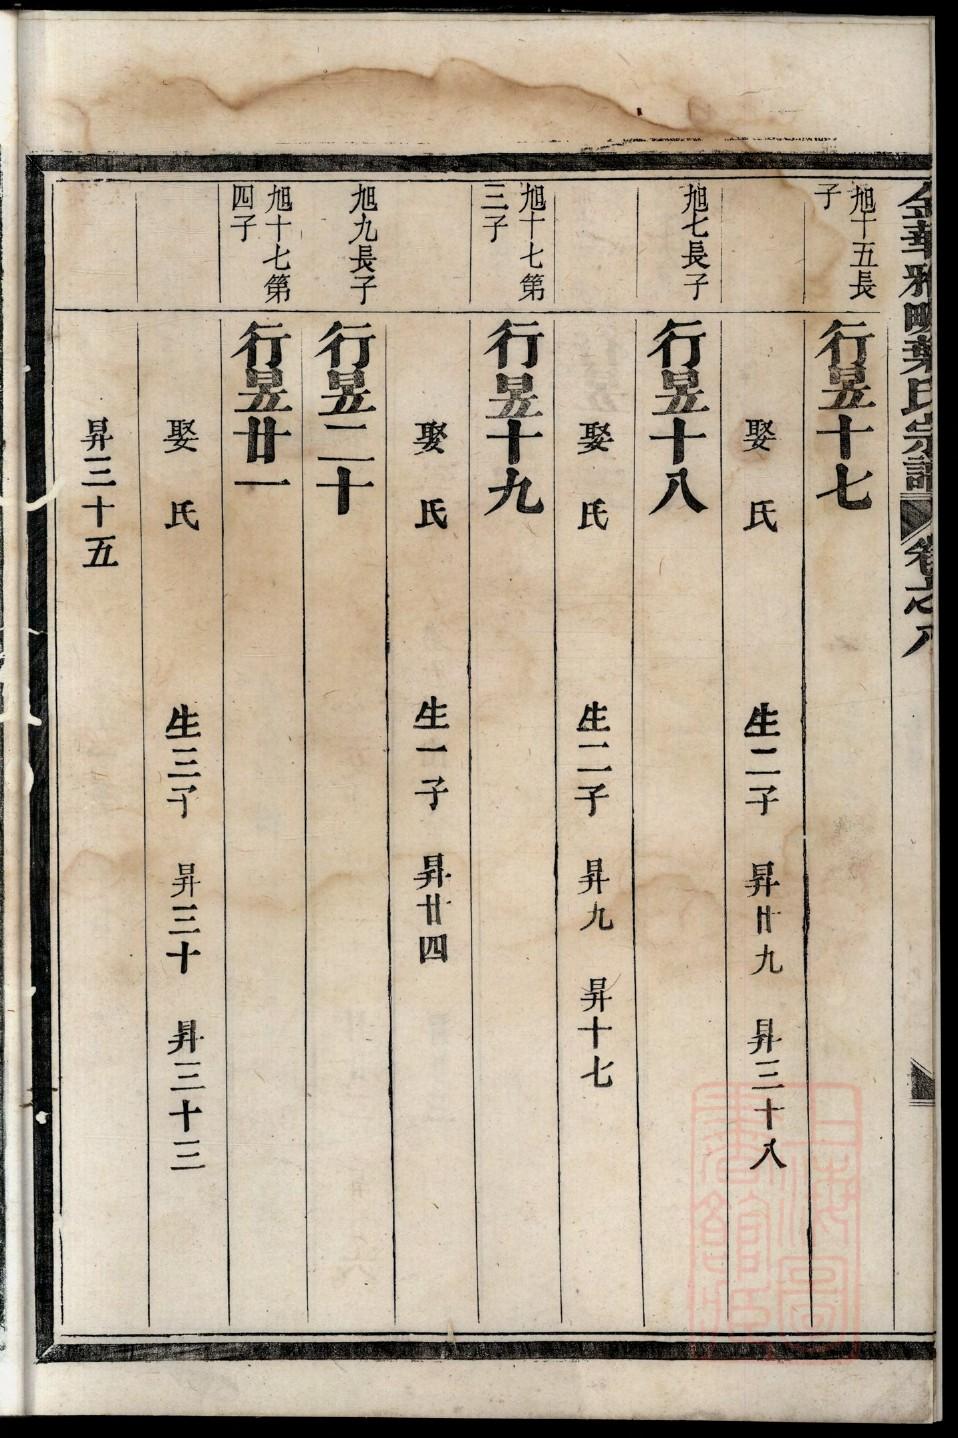 金華雅畈葉氏宗譜 卷之八
旭十五長
子
行昱十七
娶 氏 生二子 昇廿九 昇三十八
旭七長子
行昱十八
娶 氏 生二子 昇九 昇十七
旭十七第
三子
行昱十九
娶 氏 生一子 昇廿四
旭九長子
行昱二十
旭十七第
四子
行昱廿一
娶 氏 生三子 昇三十 昇三十三
昇三十五
上海圖
書館藏